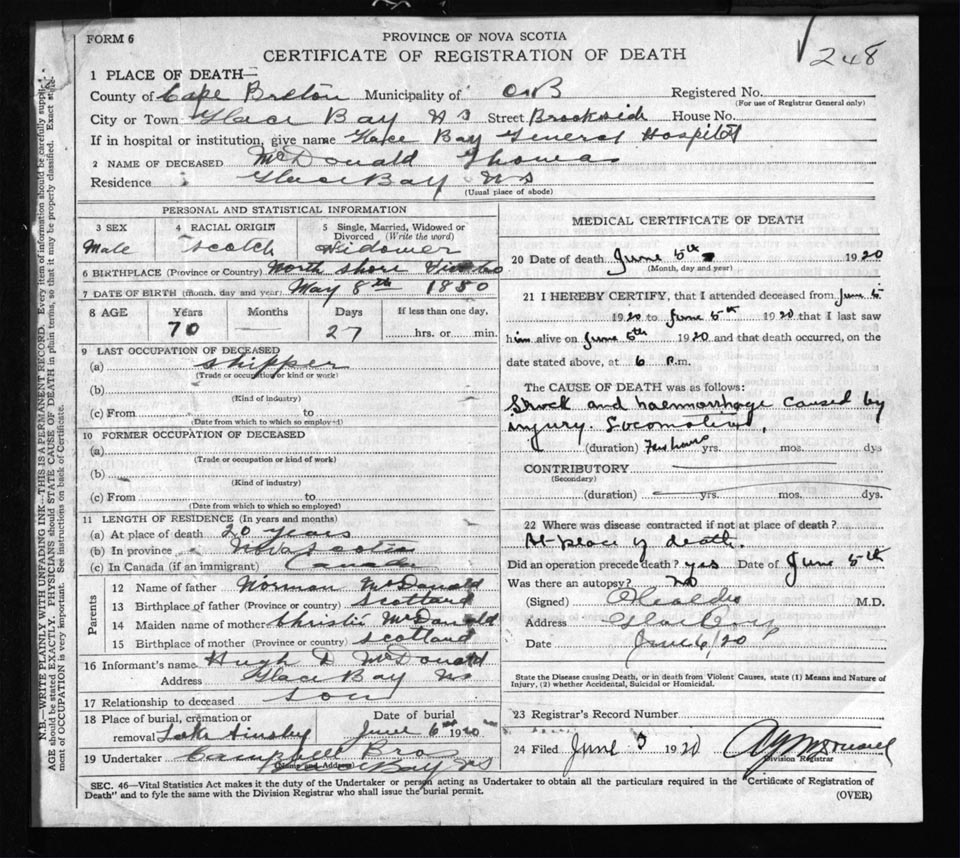 FORM 6
PROVINCE OF NOVA SCOTIA
CERTIFICATE OF REGISTRATION OF DEATH
248
1 PLACE OF DEATH—
County of Cape Breton Municipality of C B Registered No.
(For use of Registrar General only)
City or Town Glace Bay N S Street Brookside House No.
If in hospital or institution, give name Glace Bay General Hospital
2 NAME OF DECEASED McDonald Thomas
Residence Glace Bay N S
(Usual place of abode)
PERSONAL AND STATISTICAL INFORMATION
3 SEX 4 RACIAL ORIGIN 5 Single, Married, Widowed or Divorced (Write the word)
Male Scotch Widower
6 BIRTHPLACE (Province or Country) North Shore
7 DATE OF BIRTH (month, day and year) May 8th 1850
8 AGE Years Months Days If less than one day,
70 — 27 hrs. or min.
9 LAST OCCUPATION OF DECEASED
(a) Skipper
(Trade or occupation or kind or work)
(b)
(Kind of industry)
(c) From to
(Date from which to which so employed)
10 FORMER OCCUPATION OF DECEASED
(a)
(Trade or occupation or kind of work)
(b)
(Kind of industry)
(c) From to
(Date from which to which so employed)
11 LENGTH OF RESIDENCE (In years and months)
(a) At place of death 20 years
(b) In province Nova Scotia
(c) In Canada (if an immigrant) Canada
Parents
12 Name of father Norman McDonald
13 Birthplace of father (Province or country) Scotland
14 Maiden name of mother Christie McDonald
15 Birthplace of mother (Province or country) Scotland
16 Informant's name Hugh D McDonald
Address Glace Bay N S
17 Relationship to deceased Son
18 Place of burial, cremation or Date of burial
removal Lake Ainsley June 6th 1920
19 Undertaker Campbell Bros
(Name and Address) Glace Bay N S
MEDICAL CERTIFICATE OF DEATH
20 Date of death June 5th 1920
(Month, day and year)
21 I HEREBY CERTIFY, that I attended deceased from June 5
1920 to June 5th 1920 that I last saw
him alive on June 5th 1920 and that death occurred, on the
date stated above, at 6 P.m.
The CAUSE OF DEATH was as follows:
Shock and haemorrhage caused by
injury. Locomotive.
(duration) Few hours yrs. mos. dys
CONTRIBUTORY
(Secondary)
(duration) yrs. mos. dys.
22 Where was disease contracted if not at place of death?
At place of death.
Did an operation precede death? yes Date of June 5th
Was there an autopsy? no
(Signed) M.D.
Address Glace Bay
Date June 6/20
State the Disease causing Death, or in death from Violent Causes, state (1) Means and Nature of
Injury, (2) whether Accidental, Suicidal or Homicidal.
23 Registrar's Record Number
24 Filed June 1920
Division Registrar
SEC. 46—Vital Statistics Act makes it the duty of the Undertaker or person acting as Undertaker to obtain all the particulars required in the "Certificate of Registration of
Death" and to fyle the same with the Division Registrar who shall issue the burial permit.
(OVER)
N.B.—WRITE PLAINLY WITH UNFADING INK—THIS IS A PERMANENT RECORD. Every item of information should be carefully supplied.
AGE should be stated EXACTLY. PHYSICIANS should STATE CAUSE OF DEATH in plain terms, so that it may be properly classified. Exact state-
ment of OCCUPATION is very important. See instructions on back of Certificate.